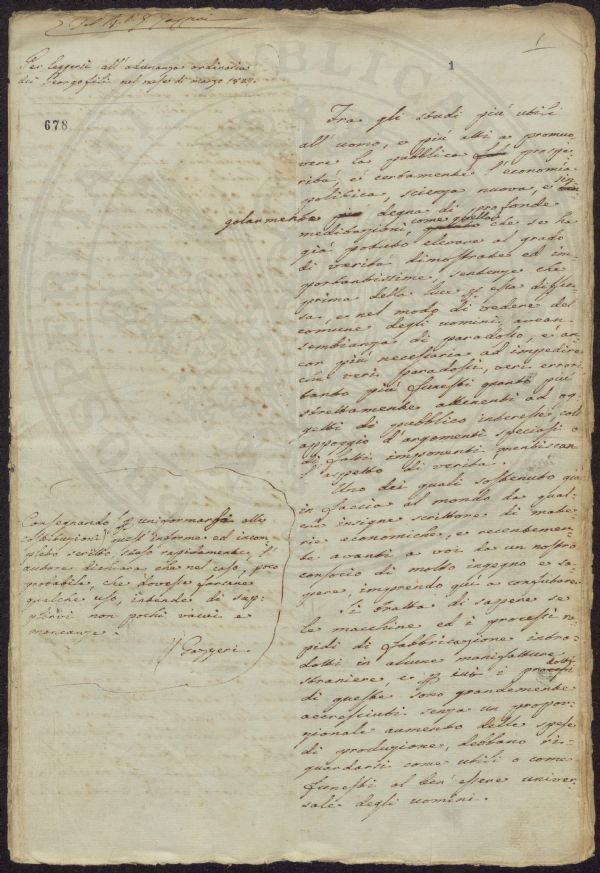 Del Sig. Gazzeri
Per leggersi all'adunanza ordinaria
dei Georgofili nel mese di marzo 1827.
1
1
678
Fra gli studi più utili
all'uomo, e più atti a promuo
vere la pubblica prospe-
rità, è certamente l'economia
politica, scienza nuova, e sin-
golarmente degna di profonde
meditazioni, come quella che se ha
già potuto elevare al grado
di verità dimostrate ed im-
portantissime sentenze che
prima della luce per essa diffu-
sa, e nel modo di vedere del
comune degli uomini, avean
sembianza di paradosso, è an-
cor più necessaria ad impedire
che veri paradossi, veri errori
tanto più funesti quanto più
strettamente attenenti ad og-
getti di pubblico interesse, coll'
appoggio d'argomenti speciosi o
di fatti imponenti mentiscan
l'aspetto di verità.
Uno dei quali sostenuto già
in faccia al mondo da qual-
che insigne scrittore di mate-
rie economiche, e recentemen-
te avanti a voi da un nostro
consocio di molto ingegno e sa-
pere, imprendo quì a confutare.
Si tratta di sapere se
le macchine ed i processi ra-
pidi di fabbricazione intro-
dotti in alcune manifatture
straniere, e per cui i prodotti
di queste sono grandemente
accresciuti senza un propor-
zionale aumento delle spese
di produzione, debbano ri-
guardarsi come utili o come
funesti al ben'essere univer-
sale degli uomini.
Consegnando per uniormarsi alle
costituzioni quest'informe ed incom-
pleto scritto, steso rapidamente, l'
autore dichiara che nel caso, poco
probabile, che dovesse farsene
qualche uso, intende di sup-
plirvi non pochi vacui e
mancanze.
Gazzeri.